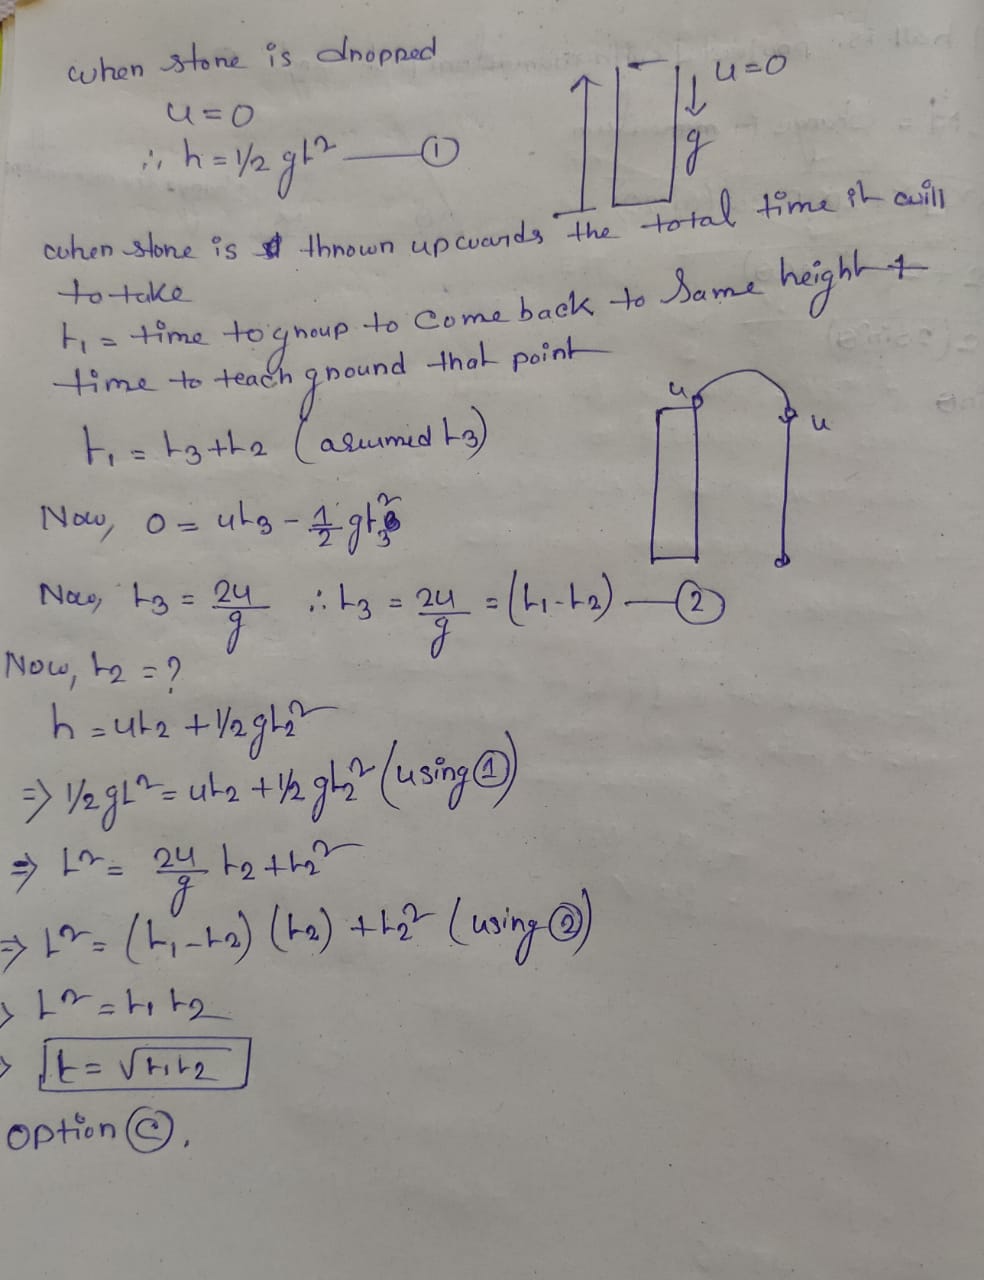 when stone is dropped
u=0
u=0
∴ h = 1/2 gt² —— ①
g
when stone is thrown upwards the total time it will
to take
t₁ = time to group to come back to same height +
time to teach ground that point
u
u
t₁ = t₃+t₂ (assumed t₃)
Now, 0 = ut₃ - 1/2 gt₃²
Now, t₃ = 2u/g ∴ t₃ = 2u/g = (t₁-t₂) —②
Now, t₂ = ?
h = ut₂ + 1/2 gt₂²
⇒ 1/2 gt² = ut₂ + 1/2 gt₂² (using ①)
⇒ t² = 2u/g t₂ + t₂²
⇒ t² = (t₁-t₂) (t₂) + t₂² (using ②)
⇒ t² = t₁ t₂
⇒ t = √t₁t₂
option ⓒ.